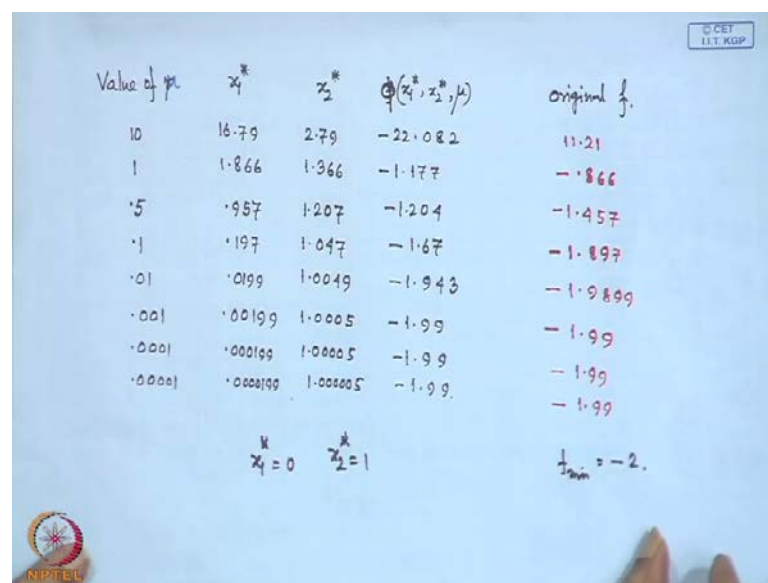 © CET
I.I.T. KGP
Value of μ x₁* x₂* φ(x₁*, x₂*, μ) original f.
10 16.79 2.79 -22.082 11.21
1 1.866 1.366 -1.177 -.866
.5 .957 1.207 -1.204 -1.457
.1 .197 1.047 -1.67 -1.897
.01 .0199 1.0049 -1.943 -1.9899
.001 .00199 1.0005 -1.99 -1.99
.0001 .000199 1.00005 -1.99 -1.99
.00001 .0000199 1.000005 -1.99. -1.99
x₁* = 0 x₂* = 1 f_min = -2.
NPTEL